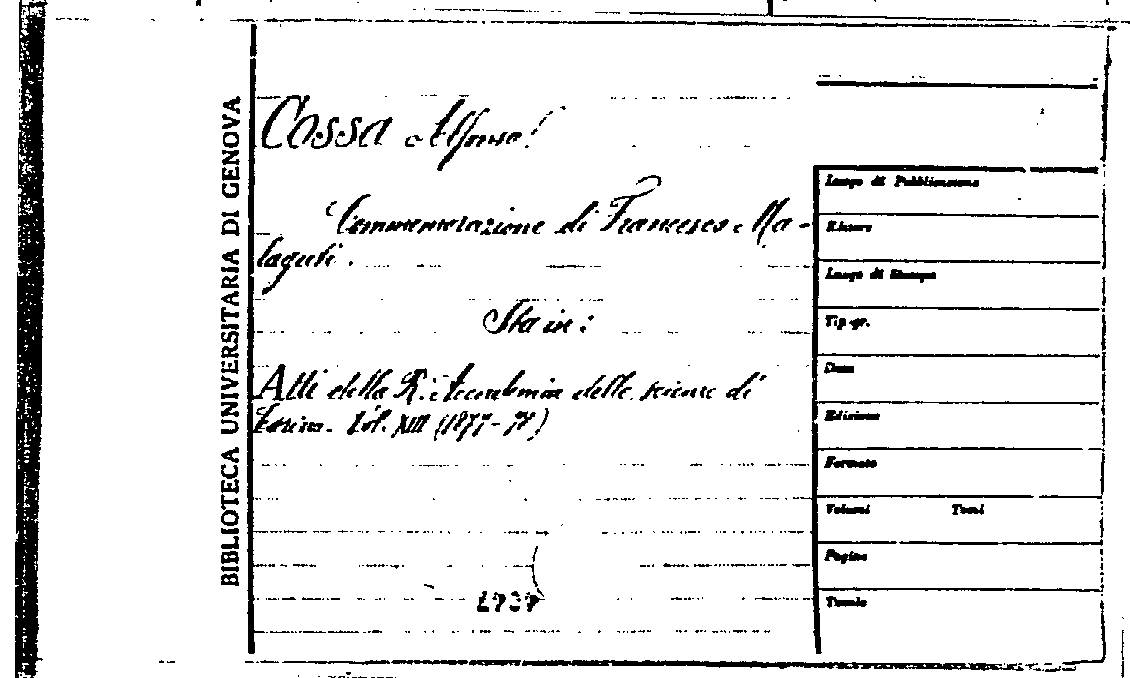 BIBLIOTECA UNIVERSITARIA DI GENOVA
Cossa Alfonso
Commemorazione di Francesco Ma-
laguti.
Sta in:
Atti della R. Accademia delle scienze di
Torino. Vol. XIII (1877-78)
Luogo di Pubblicazione
Editore
Luogo di Stampa
Tip-gr.
Data
Edizione
Formato
Volumi Tomi
Pagine
Tavole